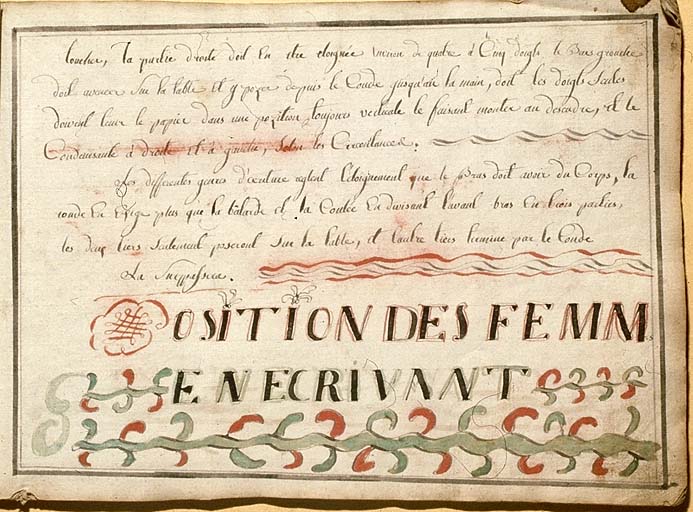 toucher, la partie droite doit en etre eloignée environ de quatre à Cinq doigts, le Bras gauche
doit avancer Sur la table et y pozer depuis le Coude jusqu'à la main, dont les doigts Seules
doivent tenir le papier dans une pozition toujours verticale le faisant monter ou descendre, et le
Conduisante à droite et à gauche, Selon les Circonstances.
Les differentes genres d'ecriture reglent l'éloignement que le Bras doit avoir du Corps, la
ronde En Exige plus que la batarde et la Coulée En divisant l'avant bras En trois parties,
les deux tiers Seulement poseront Sur la table, et l'autre tiers termine par le Coude
La
POSITION DES FEMM
EN ECRIVANT